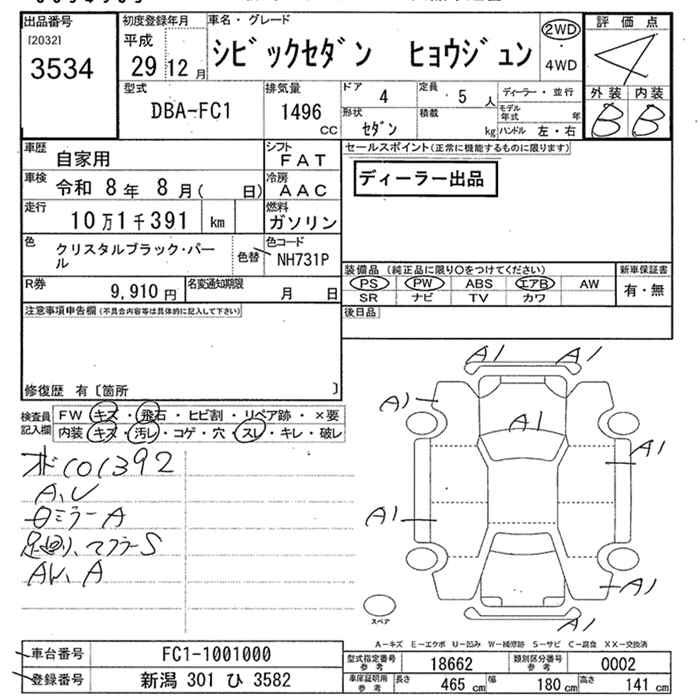 出品番号
[2032]
3534
初度登録年月
平成
29 12月
車名・グレード
シビックセダン ヒョウジュン
2WD
・
4WD
評価点
4
外装 内装
B B
型式
DBA-FC1
排気量
1496 cc
ドア 4
定員 5 人
形状 セダン
積載 kg
ディーラー・並行
モデル年式 年
ハンドル 左・右
車歴
自家用
シフト
FAT
車検
令和 8年 8月( 日)
冷房
AAC
走行
10万1千391 km
燃料
ガソリン
色
クリスタルブラック・パール
色替
色コード
NH731P
R券
9,910円
名変通知期限
月 日
セールスポイント(正常に機能するものに限ります)
ディーラー出品
装備品(純正品に限り○をつけてください)
PS PW ABS エアB AW
SR ナビ TV カワ
新車保証書
有・無
後日品
注意事項申告欄(不具合内容等は具体的に記入して下さい)
修復歴 有〔箇所 〕
検査員記入欄
FW キズ・飛石・ヒビ割・リペア跡・×要
内装 キズ・汚レ・コゲ・穴・スレ・キレ・破レ
101392
A、U
ミラーA
足廻り、マフラーS
AW、A
A1 A1
A1
A1
A1
A1
A1
A1
スペア
A-キズ E-エクボ U-凹み W-補修跡 S-サビ C-腐食 XX-交換済
車台番号
FC1-1001000
登録番号
新潟 301 ひ 3582
型式指定番号 参考
18662
類別区分番号 参考
0002
車庫証明用 参考
長さ 465 cm
幅 180 cm
高さ 141 cm